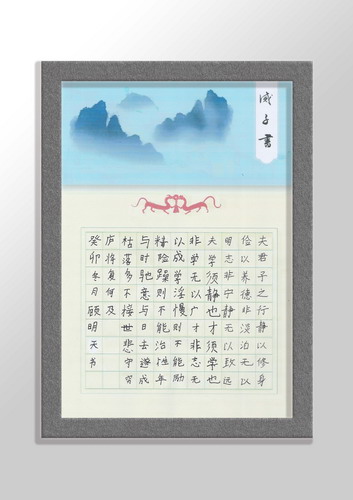 诫子書
夫君子之行静以修身
俭以养德非淡泊无以
明志非宁静无以致远
夫学须静也才须学也
非学无以广才非志无
以成学淫慢则不能励
精险躁则不能治性年
与时驰意与日去遂成
枯落多不接世悲守穷
庐将复何及
癸卯冬月顾明天书